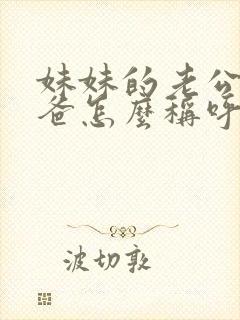 妹妹的老公
爸怎麼稱呼
波切敦